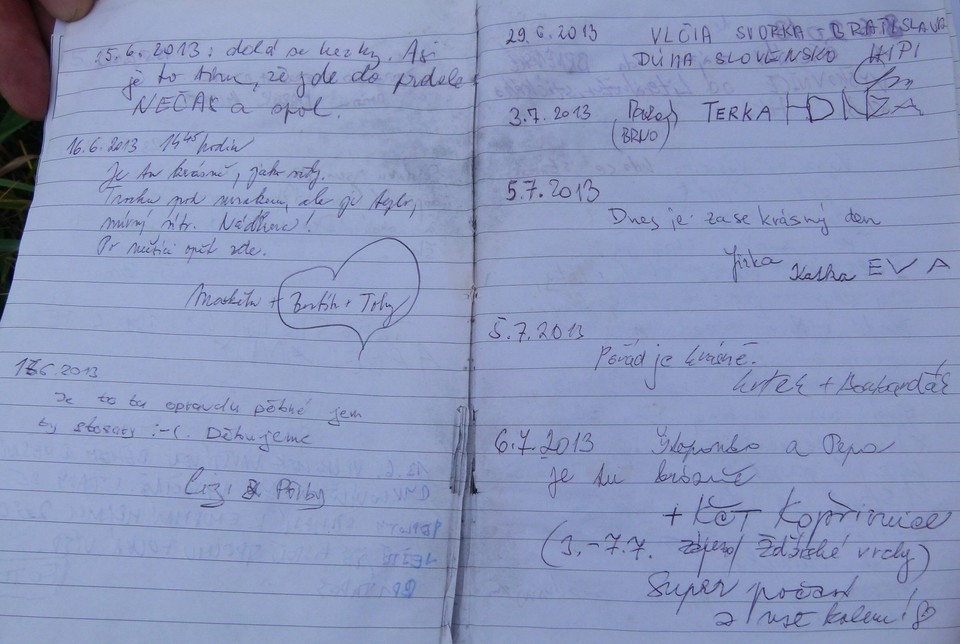 15.6.2013: delá se hezky. Asi
je to tím, že jde do prdele
NEČAS a spol.
16.6.2013 14⁴⁵ hodin
Je tu krásně, jako vždy.
Trocha pod mrakem, ale je teplo,
mírný vítr. Nádhera!
Po měsíci opět zde.
Markéta + Bertík + Toby
17.6.2013
Je to tu opravdu pěkné jem
ty stožáry :-(. Děkujeme
Lízi & Přiby
29.6.2013 VLČIA SVORKA BRATISLAVA
DÚHA SLOVENSKO HIPI
3.7.2013 TERKA
(BRNO)
5.7.2013
Dnes je zase krásný den
Jirka Katka EVA
5.7.2013
Pořád je krásně.
6.7.2013 a Pepa
je tu krásně
+ KČT Kopřivnice
(3.-7.7. Žďárské vrchy)
Super počasí
a vše kolem!